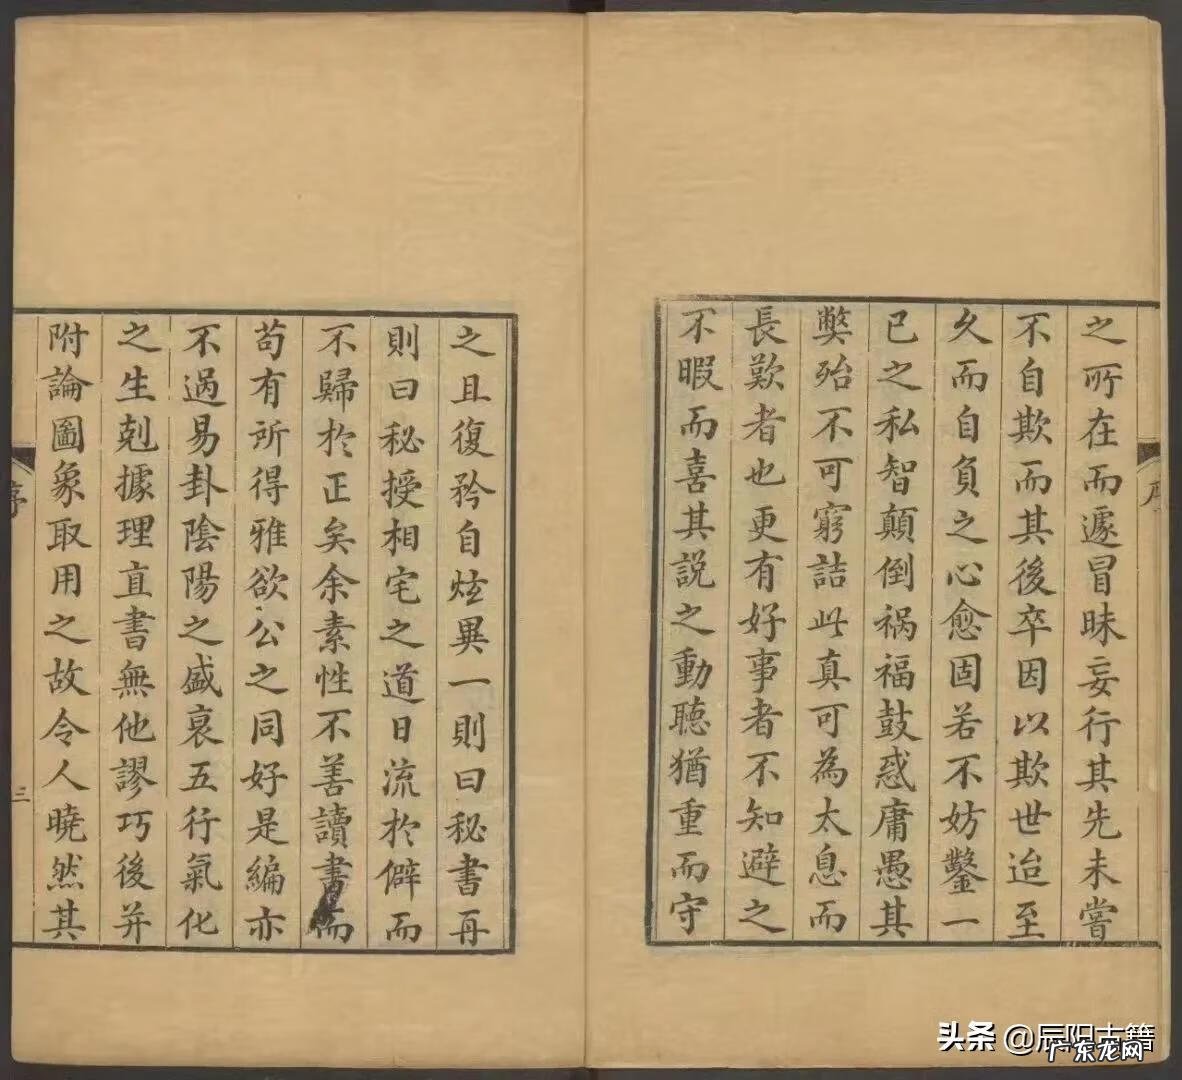 之所在而遽冒昧妄行其先未嘗
不自欺而其後卒因以欺世迨至
久而自負之心愈固若不妨鑿一
已之私智顛倒禍福鼓惑庸愚其
弊殆不可窮詰此真可為太息而
長歎者也更有好事者不知避之
不暇而喜其說之動聽猶重而守
序
之且復矜自炫異一則曰秘書再
則曰秘授相宅之道日流於僻而
不歸於正矣余素性不善讀書而
苟有所得雅欲公之同好是編亦
不過易卦陰陽之盛衰五行氣化
之生剋據理直書無他謬巧後并
附論圖象取用之故令人曉然其
序
三
头条 @辰阳古籍
广东龙网